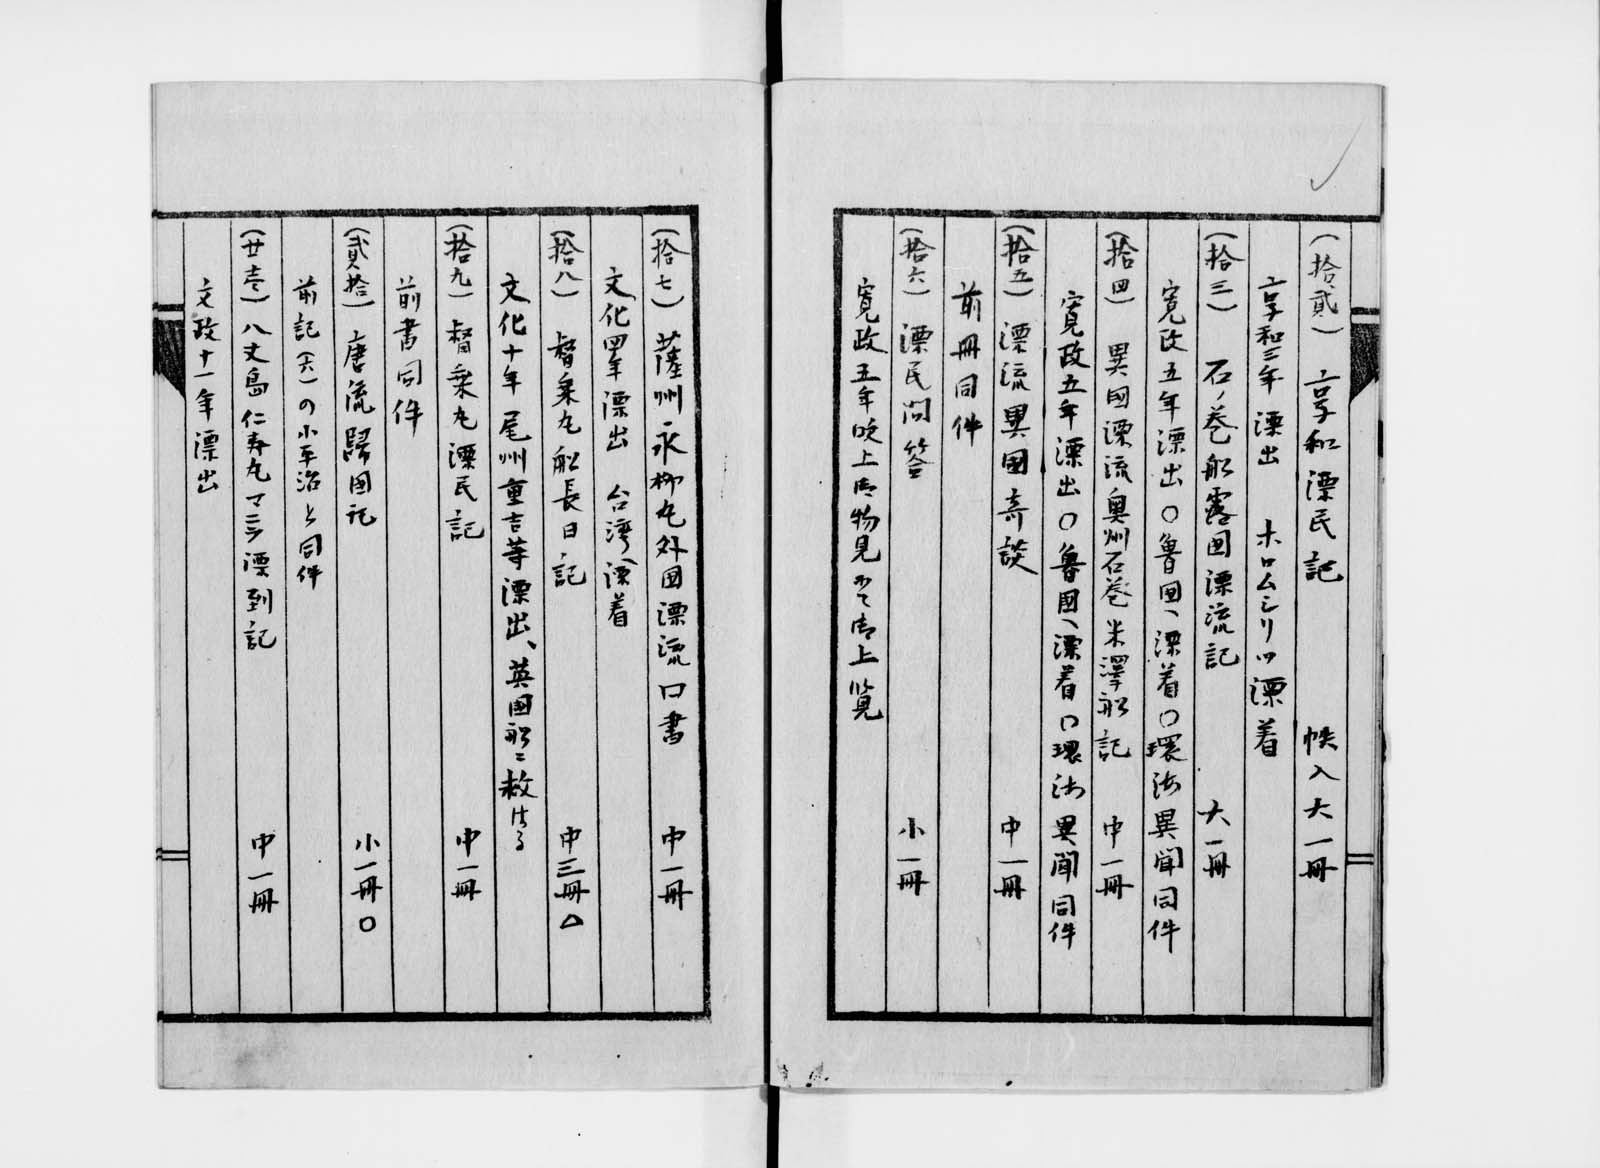 (拾貳) 享和漂民記 帙入大一冊
享和三年漂出 ホロムシリ四漂着
(拾三) 石ノ巻船露国漂流記 大一冊
寛政五年漂出〇魯国ヘ漂着〇環海異聞同件
(拾四) 異國漂流奥州石巻米澤船記 中一冊
寛政五年漂出〇魯國ヘ漂着〇環海異聞同件
(拾五) 漂流異國奇談 中一冊
前冊同件
(拾六) 漂民問答 小一冊
寛政五年 上御物見 御上覧
(拾七) 薩州永柳丸外国漂流口書 中一冊
文化四年漂出 台湾ヘ漂着
(拾八) 督乗丸船長日記 中三冊△
文化十年尾州重吉等漂出、英國船ニ救ハる
(拾九) 督乗丸漂民記 中一冊
前書同件
(貳拾) 唐流歸国記 小一冊〇
前記(六)の小平治と同件
(廿壱) 八丈島仁寿丸マニラ漂到記 中一冊
文政十一年漂出